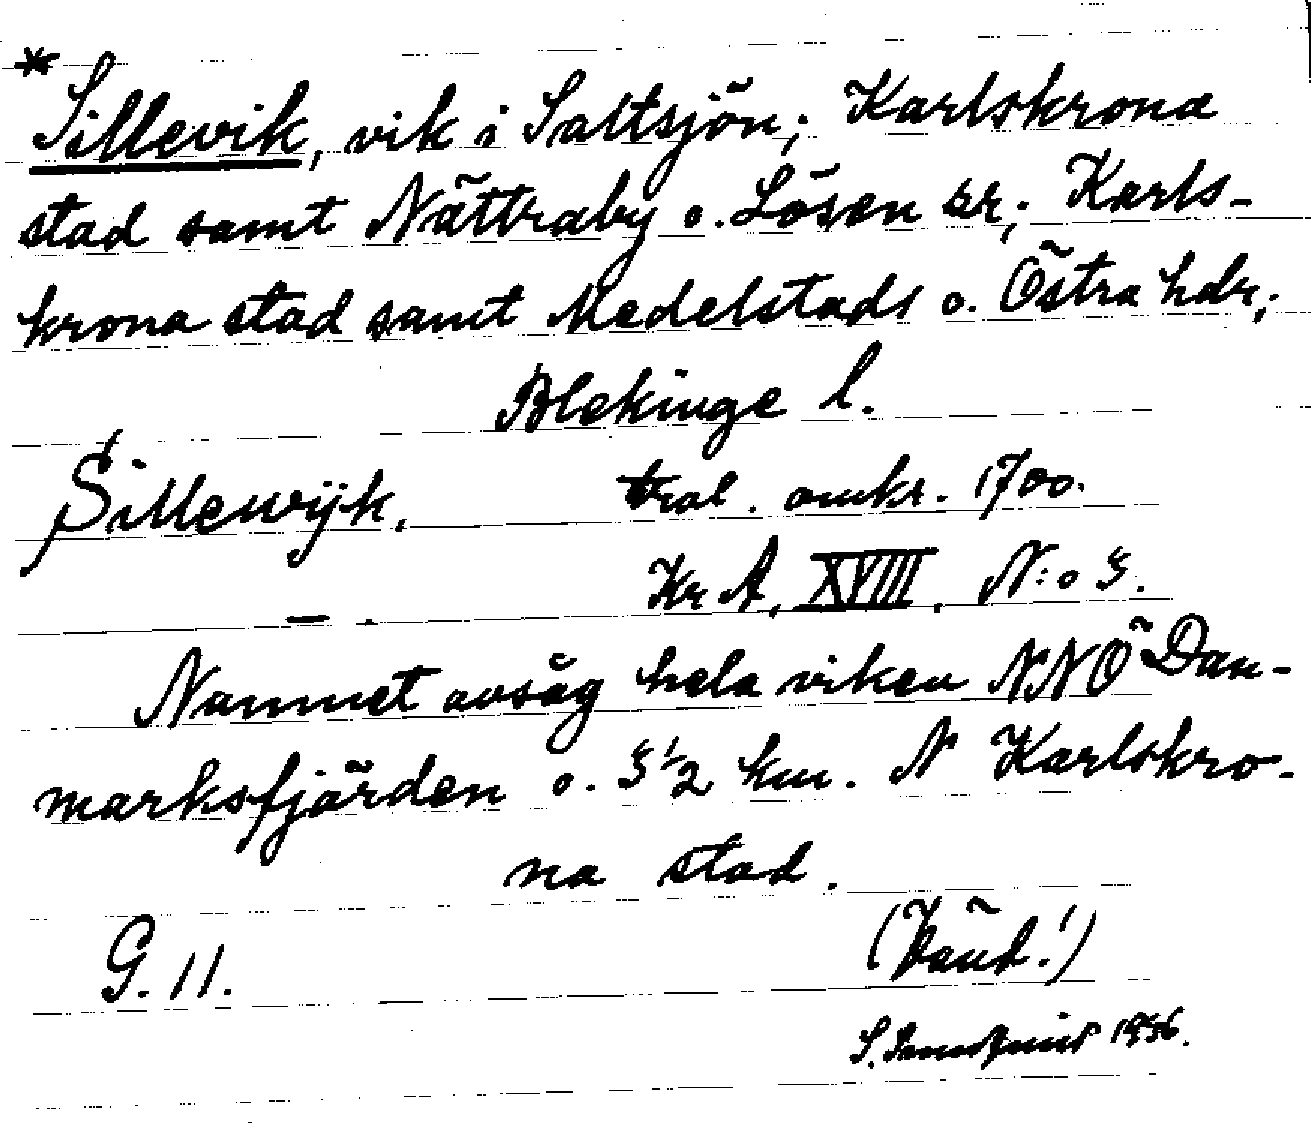 * Sillevik, vik i Saltsjön; Karlskrona
stad samt Nättraby o. Lösen sr; Karls-
krona stad samt Medelstads o. Östra hdr;
Blekinge l.
Sillewijk. trol. omkr. 1700.
Kr A, XVIII. N:o 3.
— .
Namnet avsåg hela viken NNÖ Dan-
marksfjärden o. 3 1/2 km. N Karlskro-
na stad.
G. 11. (Vänd!)
S. 1956.